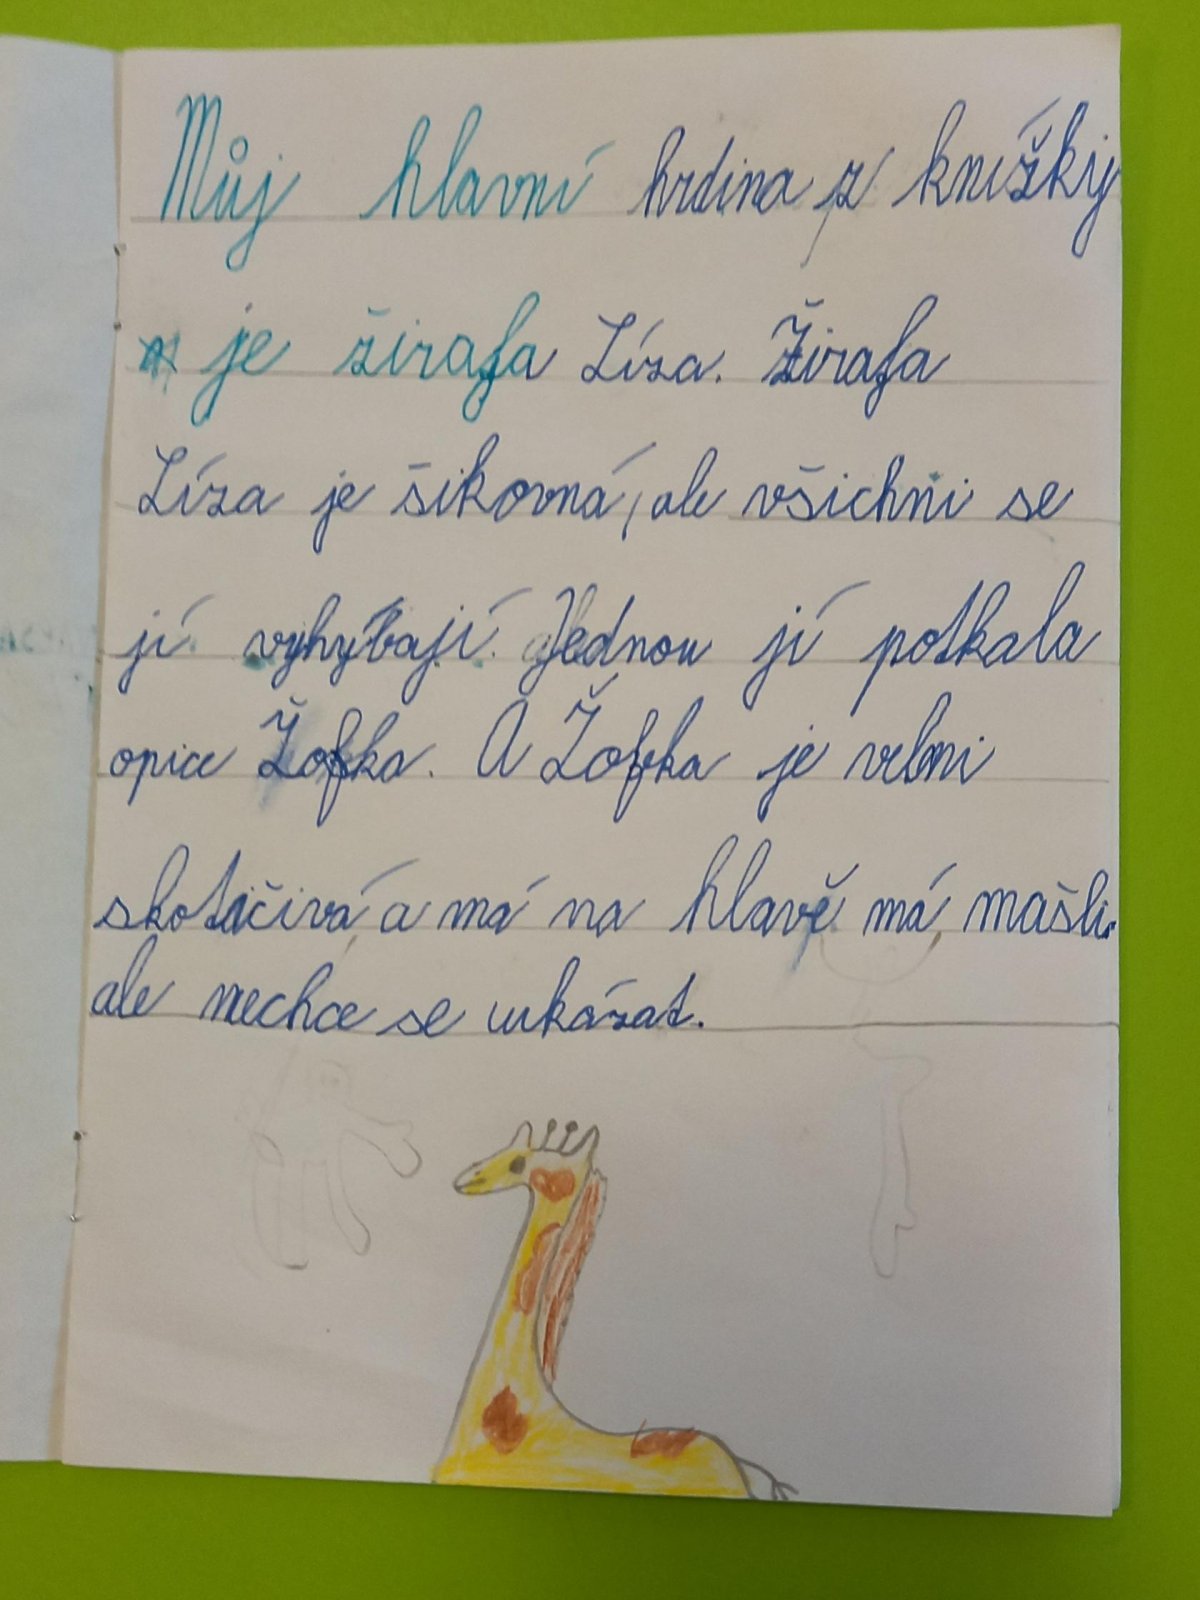 Můj hlavní hrdina z knížky
je žirafa Líza. Žirafa
Líza je šikovná, ale všichni se
jí vyhýbají. Jednou jí potkala
opice Žofka. A Žofka je velmi
skotačivá, a má na hlavě má, mašli.
ale nechce se ukázat.